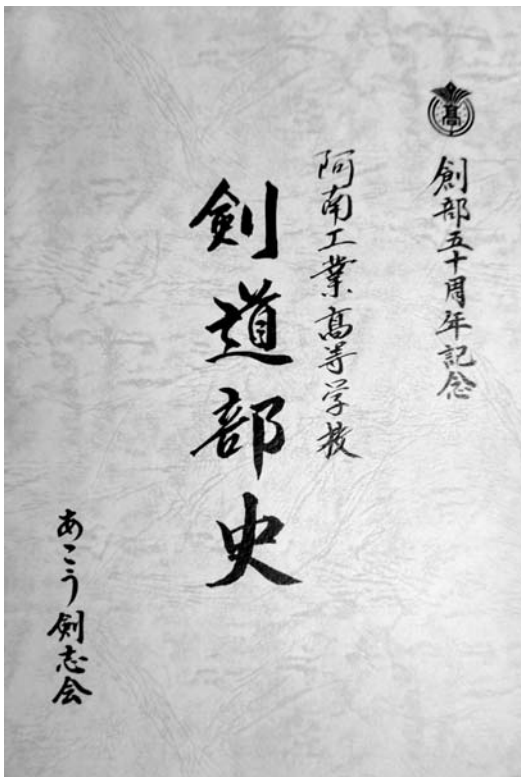 髙
創部五十周年記念
阿南工業髙等学校
剣道部史
あこう剣志会